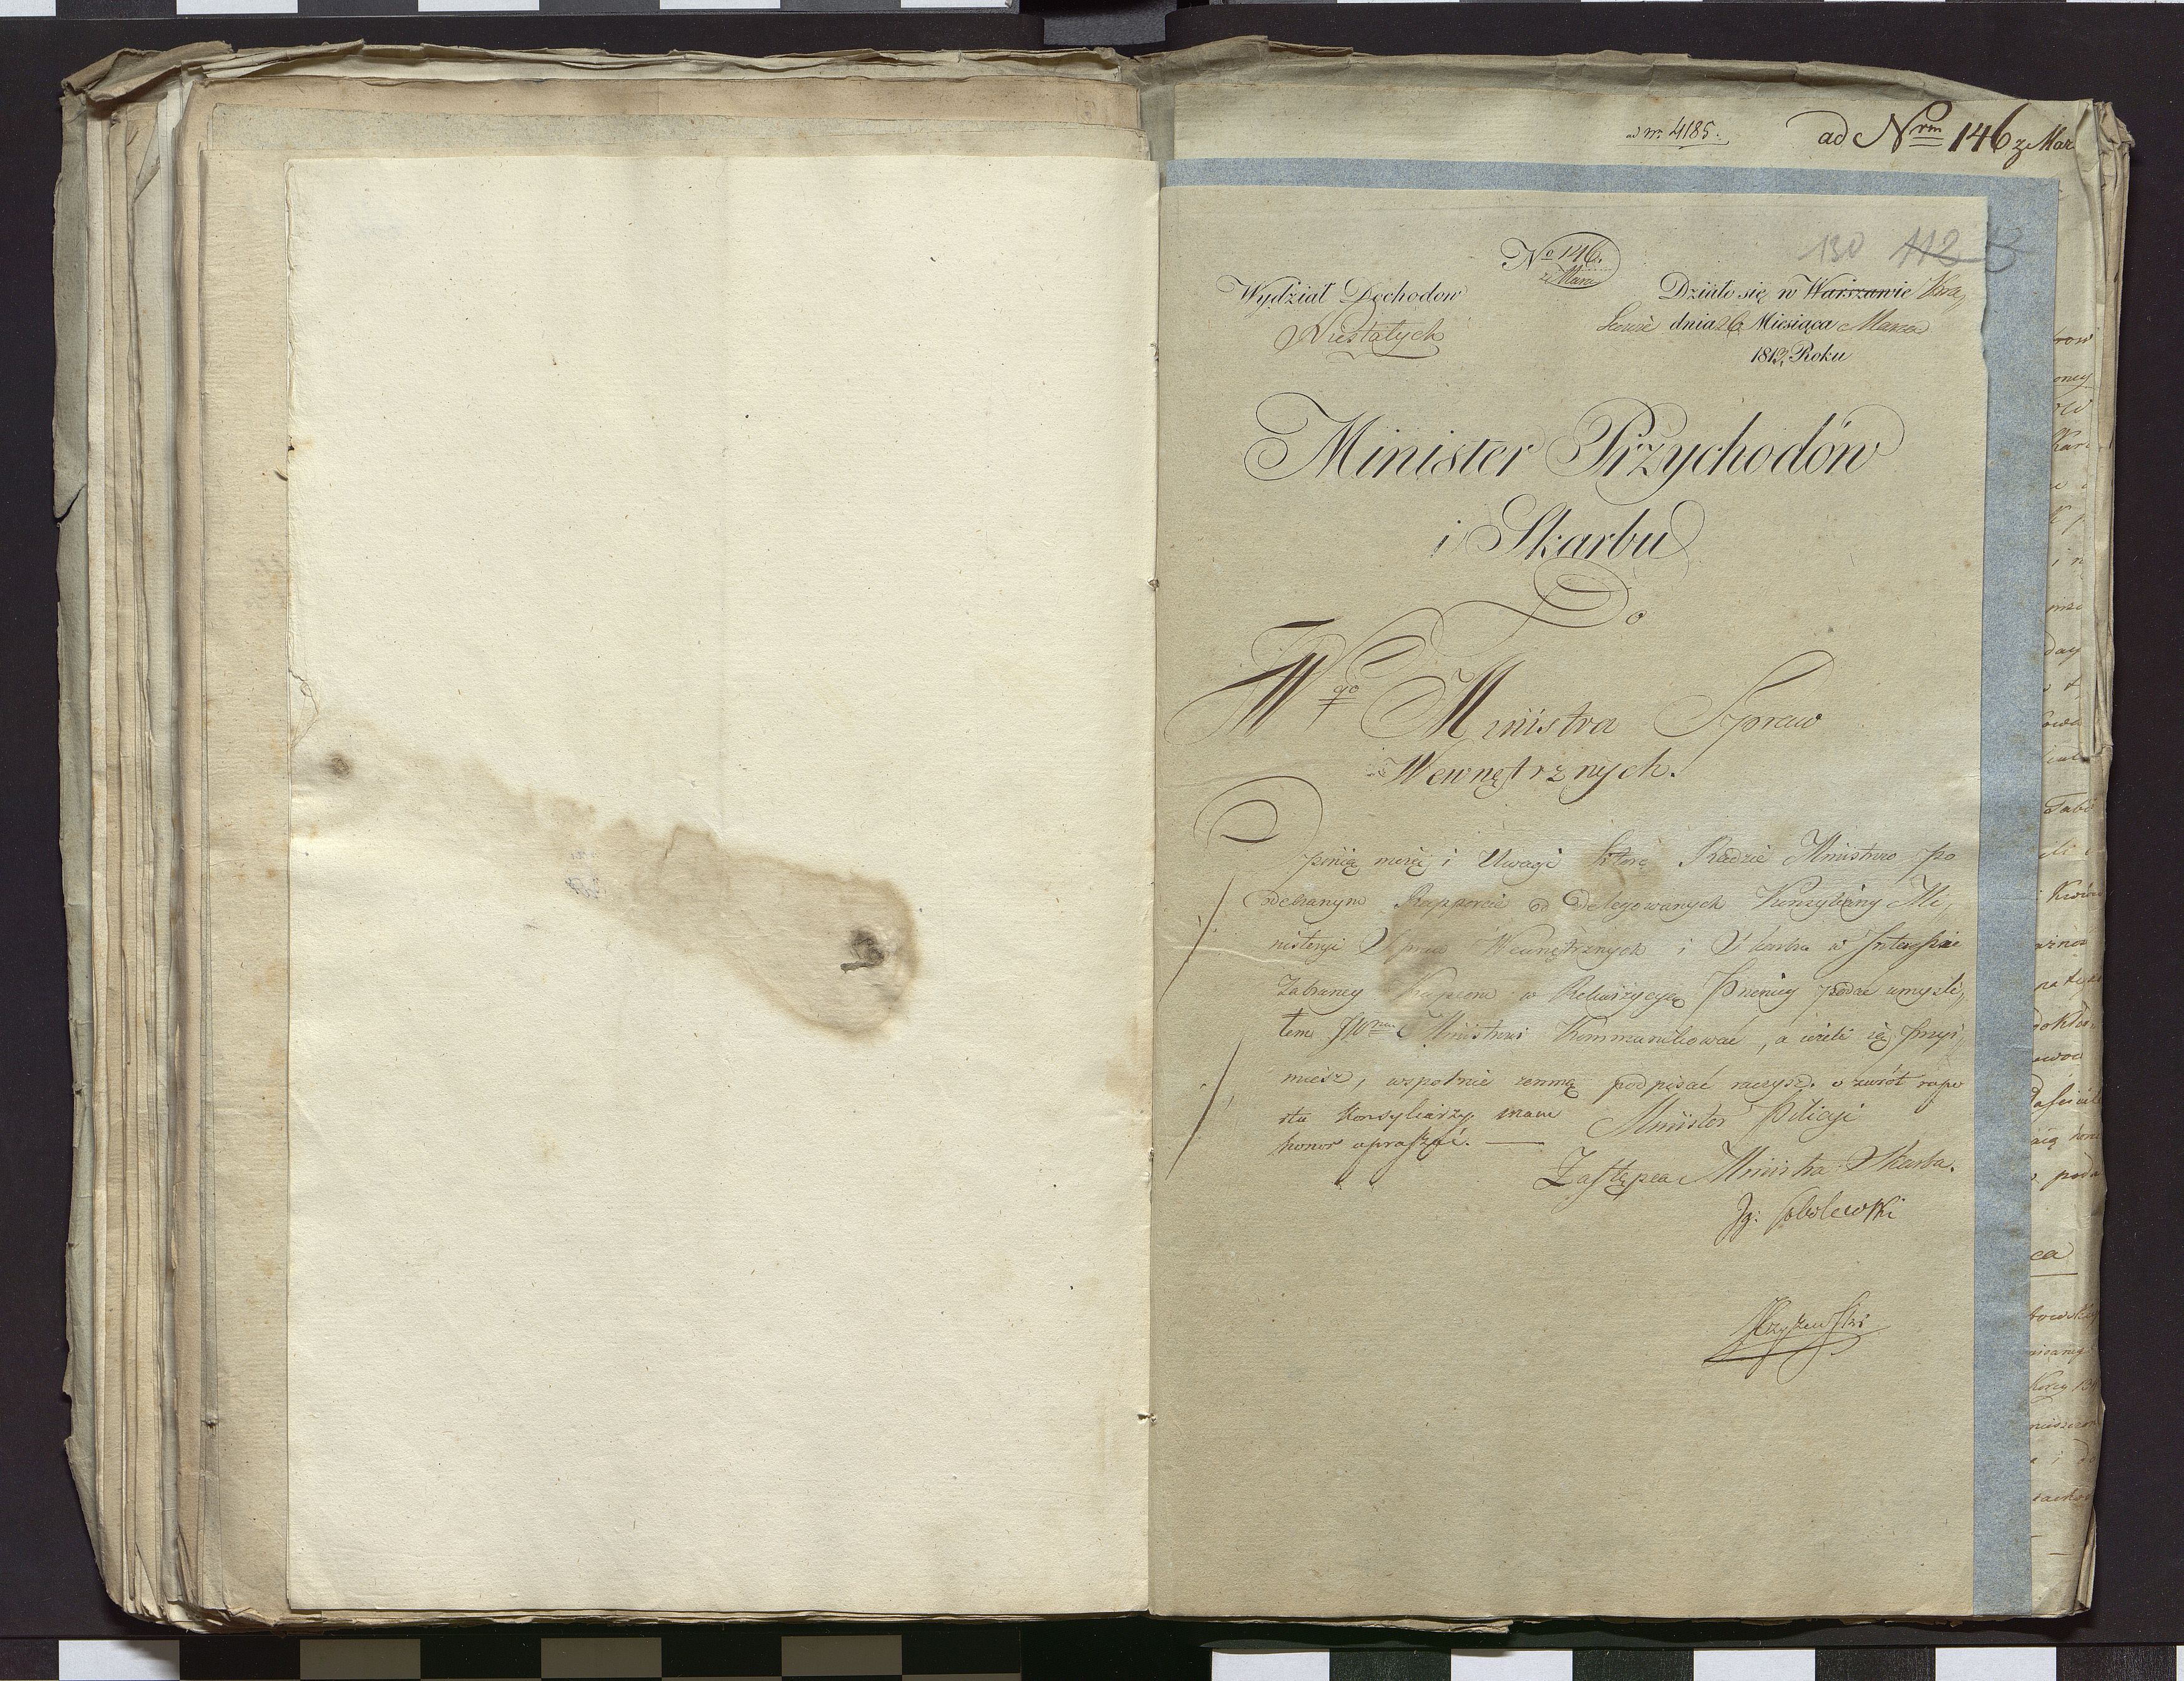 ad Nr. 4185.
ad Nrm 146 z Mar
No 146.
z Marca
130 112
Wydział Dochodow
Niestałych
Działo się w Warszawie Kra,
kowie dnia 26 Miesiąca Marca
1813 Roku
Minister Przychodów
i Skarbu
Do
JWgo Ministra Spraw
Wewnętrznych.
Opinią moię i Uwagi które Radzie Ministrow po
odebranym Rapporcie od Delegowanych Konsyliarzy Mi,
nisteryi Spraw Wewnętrznych i Skarbu w Interessie
Zabraney Kupcom w Rekwizycyą Pszenicy podać umyśli,
łem JWmu Ministrowi Kommunikować, a ieżeli się przyi,
miesz, wspolnie zemną podpisać raczysz. o zwrót rapo
rtu Konsyliarzy mam
honor upraszać.
Minister Policyi
Zastępca Ministra Skarbu.
Ig: Sobolewski